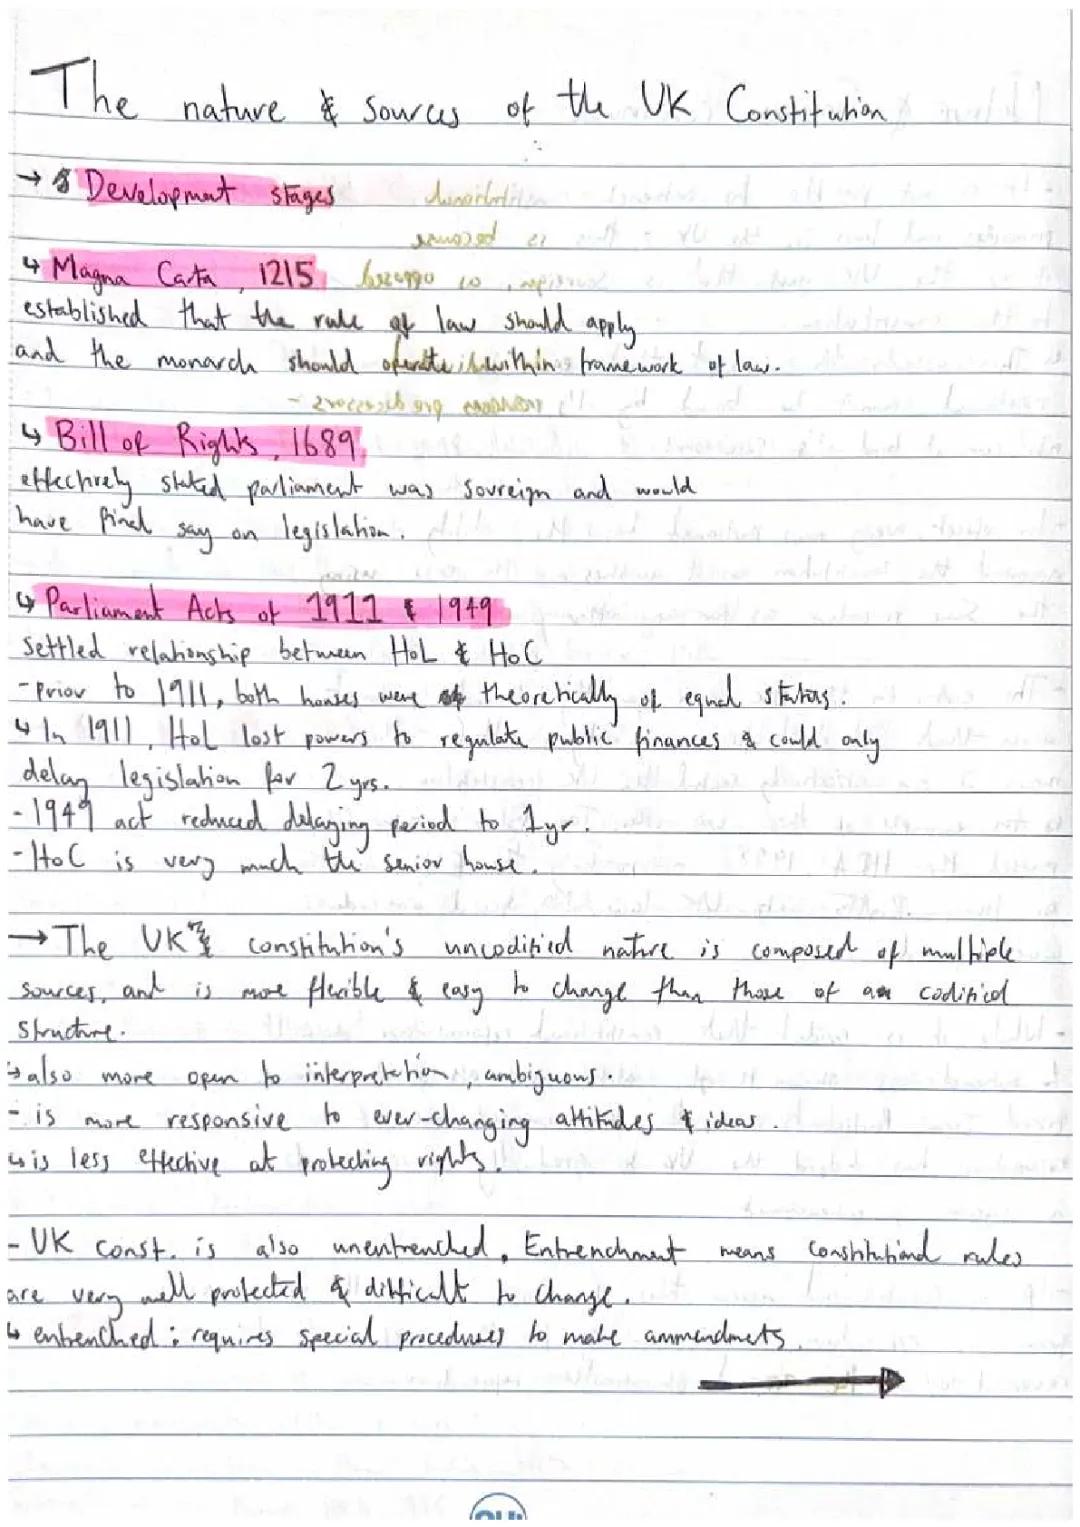 The nature & Sources of the UK Constitution
→ Development stages
↳ Magna Carta, 1215
established that the rule of law should apply
and the monarch should operate within framework of law.
↳ Bill of Rights, 1689
effectively stated parliament was sovreign and would
have final say on legislation.
↳ Parliament Acts of 1911 & 1949
Settled relationship between HoL & HoC
- Prior to 1911, both houses were theoretically of equal status.
↳ In 1911, HoL lost powers to regulate public finances & could only
delay legislation for 2 yrs.
- 1949 act reduced delaying period to 1 yr.
- HoC is very much the senior house.
→ The UK constitution's uncodified nature is composed of multiple
sources, and is more flexible & easy to change than those of a codified
structure.
→ also more open to interpretation, ambiguous.
- is more responsive to ever-changing attitudes & ideas.
↳ is less effective at protecting rights.
- UK const. is also unentrenched. Entrenchment means constitutional rules
are very well protected & difficult to change.
↳ entrenched: requires special procedures to make ammendmets.